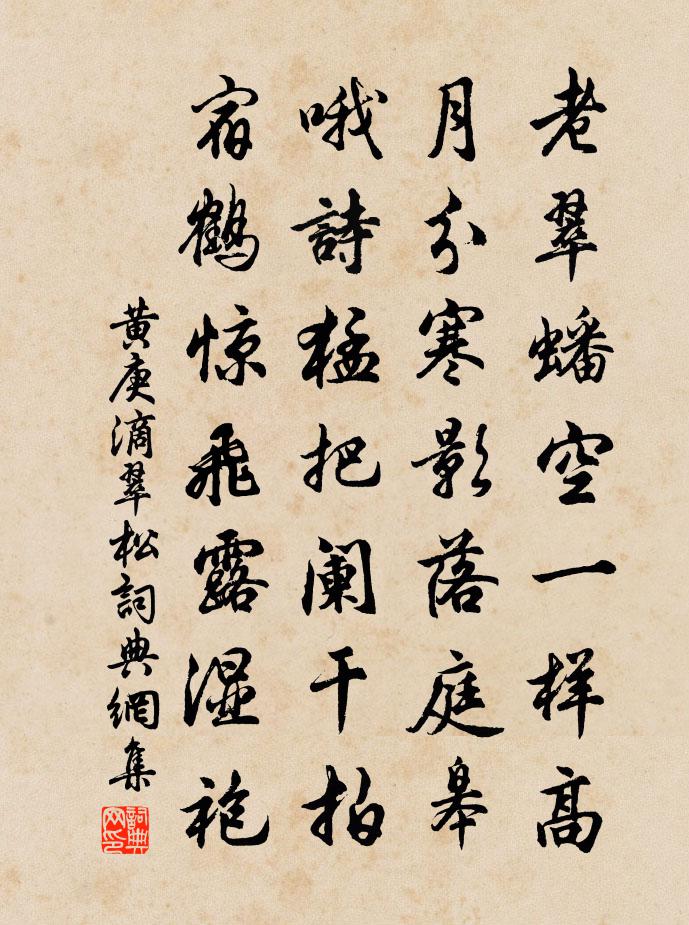 老翠蟠空一样高
月分寒影落庭皋
哦詩猛把阑干拍
宿鶴惊飛露湿袍
黄庚滴翠松詞典網集
詞典网印